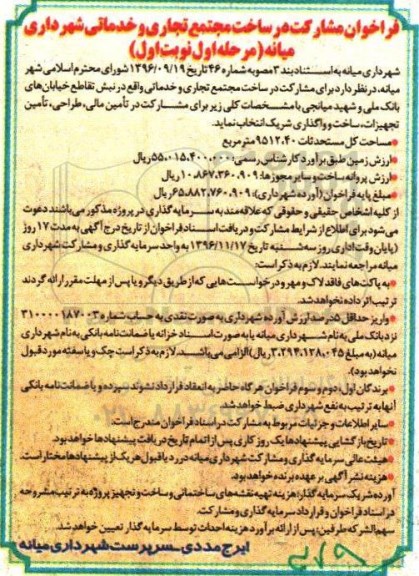 فراخوان مشارکت در ساخت مجتمع تجاری و خدماتی شهرداری
میانه (مرحله اول نوبت اول)
شهرداری میانه به استناد بند ۳ مصوبه شماره ۴۶ تاریخ ۱۳۹۶/۰۹/۱۹ شورای محترم اسلامی شهر
میانه، در نظر دارد برای مشارکت در ساخت مجتمع تجاری و خدماتی واقع در نبش تقاطع خیابان‌های
بانک ملی و شهید میانجی با مشخصات کلی زیر برای مشارکت در تأمین مالی، طراحی، تأمین
تجهیزات، ساخت و واگذاری شریک انتخاب نماید.
•مساحت کل مستحدثات ۹۵۱۲.۴۰ مترمربع
•ارزش زمین طبق برآورد کارشناس رسمی: ۵۵.۰۱۵.۴۰۰.۰۰۰ ریال
•ارزش پروانه ساخت و سایر مجوزها: ۱۰.۸۶۷.۳۶۰.۹۰۹ ریال
•مبلغ پایه فراخوان (آورده شهرداری): ۶۵.۸۸۲.۷۶۰.۹۰۹ ریال
از کلیه اشخاص حقیقی و حقوقی که علاقه‌مند به سرمایه گذاری در پروژه مذکور می‌باشند دعوت
می‌شود برای اطلاع از شرایط مشارکت و دریافت اسناد فراخوان از تاریخ درج آگهی به مدت ۱۷ روز
(پایان وقت اداری روز سه‌شنبه تاریخ ۱۳۹۶/۱۱/۱۷ به واحد سرمایه گذاری و مشارکت شهرداری
میانه مراجعه نمایند. لازم به ذکر است:
•به پاکت‌های فاقد لاک و مهر و درخواست‌هایی که از طریق دیگر و یا پس از مهلت مقرر ارائه گردند
ترتیب اثر داده نخواهد شد.
•واریز حداقل ۵ درصد ارزش آورده شهرداری به صورت نقدی به حساب شماره ۳۱۰۰۰۰۱۸۷۰۰۳
نزد بانک ملی به نام شهرداری میانه یا به صورت اسناد خزانه یا ضمانت نامه بانکی به نام شهرداری
میانه (به مبلغ ۳.۲۹۴.۱۳۸.۰۴۵ ریال) الزامی می‌باشد. لازم به ذکر است چک و یا سفته مورد قبول
نخواهد بود.
•برندگان اول، دوم و سوم فراخوان هرگاه حاضر به انعقاد قرارداد نشوند سپرده و یا ضمانت نامه بانکی
آنها به ترتیب به نفع شهرداری ضبط خواهد شد.
•سایر اطلاعات و جزئیات مربوط به مشارکت در اسناد فراخوان مندرج است.
•تاریخ بازگشایی پیشنهادها یک روز کاری پس از اتمام تاریخ دریافت پیشنهادها خواهد بود.
•هیئت عالی سرمایه گذاری و مشارکت شهرداری میانه در رد یا قبول هر یک از پیشنهادها مختار است.
•هزینه نشر آگهی بر عهده برنده خواهد بود.
آورده شریک سرمایه گذار: هزینه تهیه نقشه‌های ساختمانی و ساخت و تجهیز پروژه به ترتیب مشروحه
در اسناد فراخوان و قرارداد سرمایه گذاری و مشارکت.
سهم الشرکه طرفین: پس از ارائه برآورد هزینه احداث توسط سرمایه گذار تعیین خواهد شد.
ایرج مددی_سرپرست شهرداری میانه